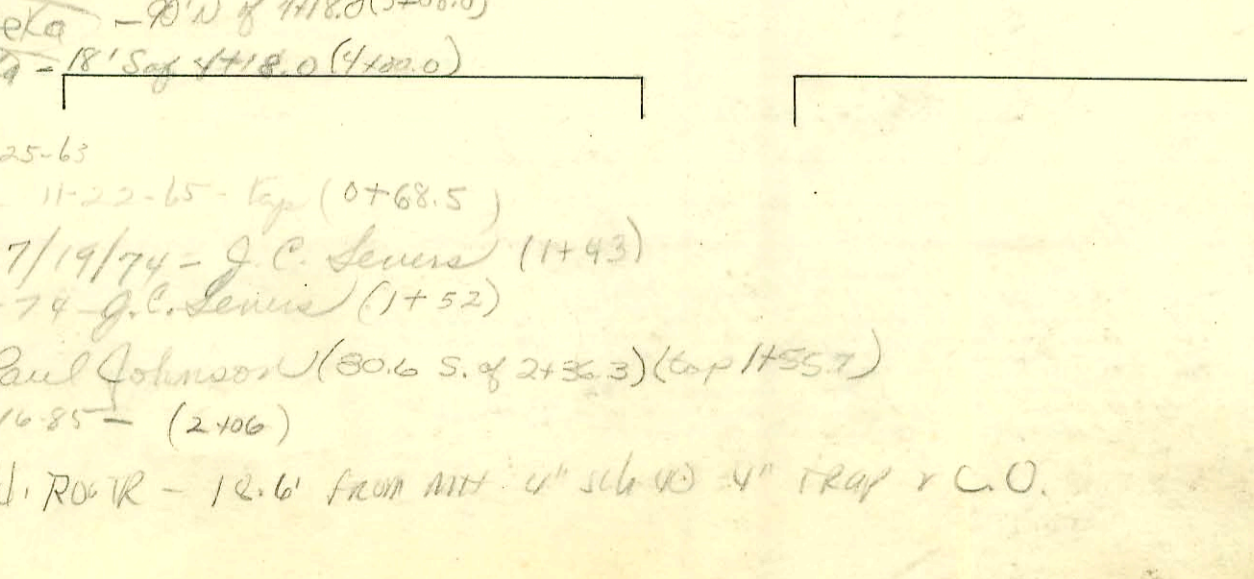 eka - 90' N of 4+18.0 (5+08.0)
a - 18' S of 4+18.0 (4+00.0)
25-63
11-22-65 - tap (0+68.5)
7/19/74 - J.C. Severs (1+43)
-74 - J.C. Severs (1+52)
Paul Johnson (80.6 S. of 2+36.3) (tap 1+55.7)
16-85 - (2+06)
- 12.6' FROM MH 4" sch 40 4" TRAP & C.O.